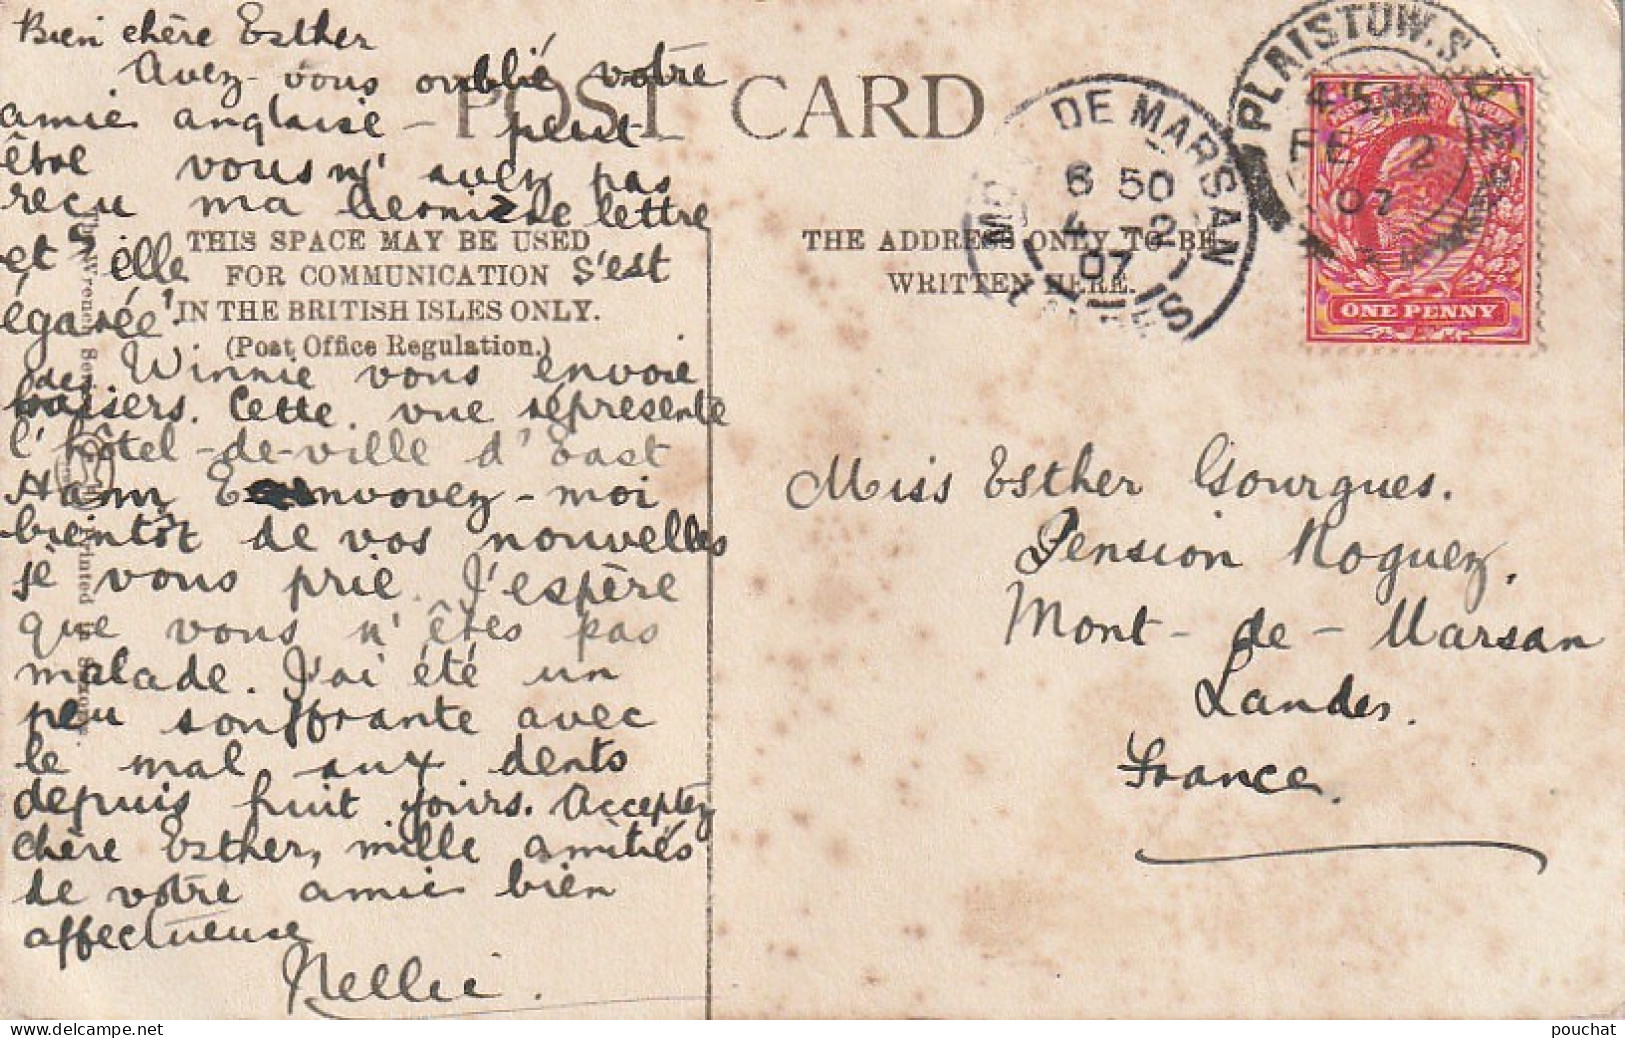 Bien chère Esther
Avez-vous oublié votre
amie anglaise - peut-
être vous n'avez pas
reçu ma dernière lettre
et s'elle s'est
égarée!
Winnie vous envoie
des
baisers. Cette vue répresente
l'hôtel-de-ville d'East
Ham Envoyez-moi
bientôt de vos nouvelles
je vous prie. J'espère
que vous n'êtes pas
malade. J'ai été un
peu souffrante avec
le mal aux dents
depuis huit jours. Acceptez
chère Esther, mille amitiés
de votre amie bien
affectueuse
Nellie.
POST CARD
THIS SPACE MAY BE USED
FOR COMMUNICATION
IN THE BRITISH ISLES ONLY.
(Post Office Regulation.)
The Wrench Series
Printed in Saxony.
THE ADDRESS ONLY TO BE
WRITTEN HERE.
MONT DE MARSAN
6 50
4 - 2
07
LANDES
PLAISTOW. S.E.
4.15 PM
FE 2
07
ONE PENNY
Miss Esther Gourgues.
Pension Noguez.
Mont-de-Marsan
Landes.
France.
pouchat